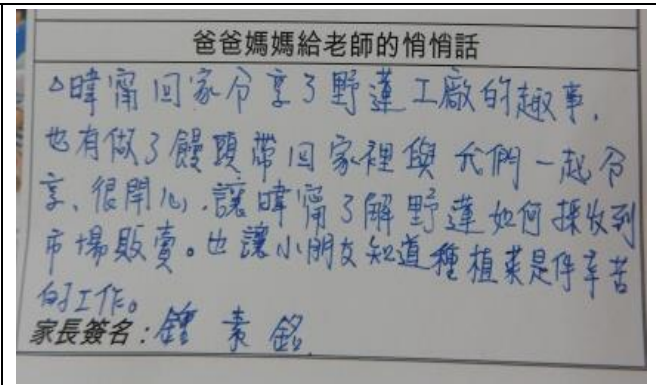 爸爸媽媽給老師的悄悄話
△暐甯回家分享了野蓮工廠的趣事,
也有做了饅頭帶回家裡與我們一起分
享、很開心.讓暐甯了解野蓮如何採收到
市場販賣。也讓小朋友知道種植菜是件辛苦
的工作。
家長簽名:鍾素銘